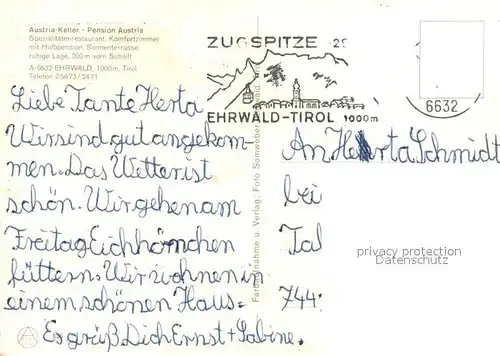 Austria-Keller - Pension Austria
Spezialitätenrestaurant, Komfortzimmer
mit Halbpension, Sonnenterrasse,
ruhige Lage, 200 m vom Schilift
A-6632 EHRWALD, 1000 m, Tirol
Telefon 05673/2471
ZUGSPITZE
EHRWALD-TIROL 1000m
6632
Liebe Tante Herta
Wir sind gut angekom-
men. Das Wetter ist
schön. Wir gehen am
Freitag Eichhörnchen
füttern. Wir wohnen in
einem schönen Haus.
Es grüß Dich Ernst + Sabine.
An Herta Schmidt
bei
Tal
744
Farbaufnahme u. Verlag: Foto Somweber
privacy protection
Datenschutz